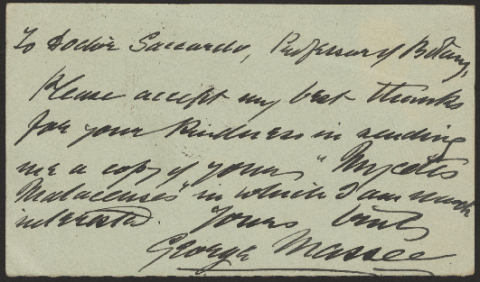 To Doctor Saccardo, Professor of Botany,
Please accept my best thanks
for your kindness in sending
me a copy of your "Mycetes
Malacenses" in which I am much
interested. Yours truly
George Massee